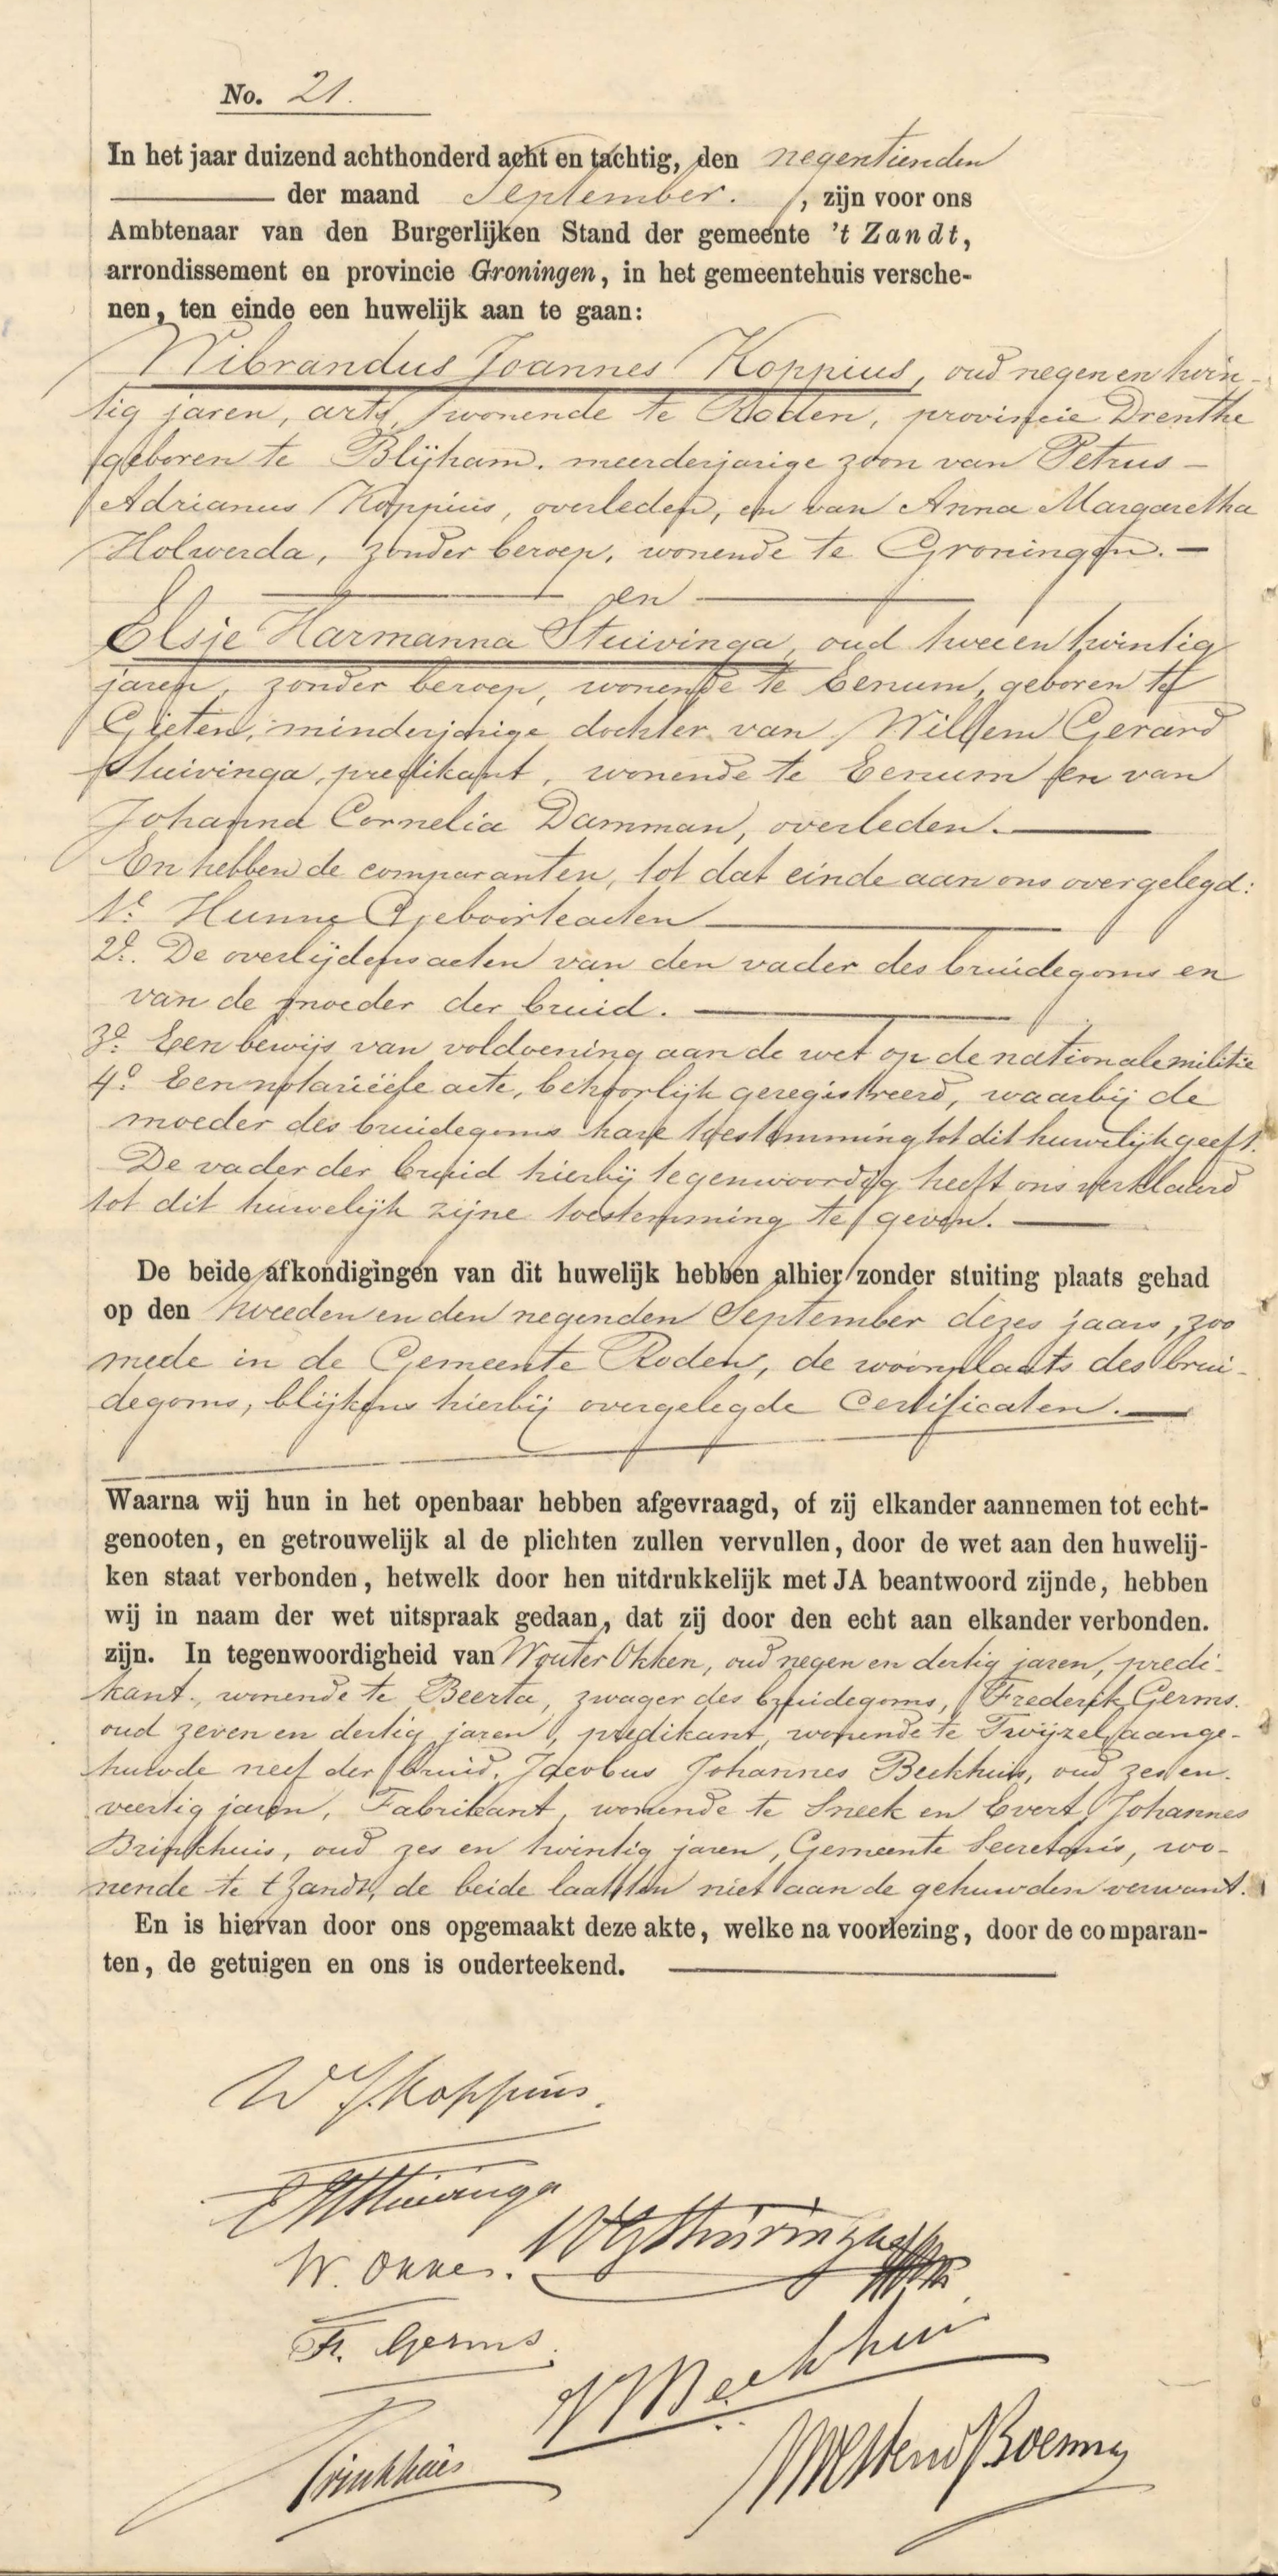 No. 21.
In het jaar duizend achthonderd acht en tachtig, den negentienden
der maand September. , zijn voor ons
Ambtenaar van den Burgerlijken Stand der gemeente 't Zandt,
arrondissement en provincie Groningen, in het gemeentehuis versche-
nen, ten einde een huwelijk aan te gaan:
Wibrandus Joannes Koppius, oud negen en twin-
tig jaren, arts, wonende te Roden, provincie Drenthe
geboren te Blijham, meerderjarige zoon van Petrus
Adrianus Koppius, overleden, en van Anna Margaretha
Holwerda, zonder beroep, wonende te Groningen.
en
Elsje Harmanna Stuivinga, oud twee en twintig
jaren, zonder beroep, wonende te Eenum, geboren te
Gieten, minderjarige dochter van Willem Gerard
Stuivinga, predikant, wonende te Eenum en van
Johanna Cornelia Damman, overleden.
En hebben de comparanten, tot dat einde aan ons overgelegd:
1e. Hunne Geboorteacten
2e. De overlijdensacten van den vader des bruidegoms en
van de moeder der bruid.
3e. Een bewijs van voldoening aan de wet op de nationale militie
4e. Een notarieële acte, behoorlijk geregistreerd, waarbij de
moeder des bruidegoms hare toestemming tot dit huwelijk geeft.
De vader der bruid hierbij tegenwoordig heeft ons verklaard
tot dit huwelijk zijne toestemming te geven.
De beide afkondigingen van dit huwelijk hebben alhier zonder stuiting plaats gehad
op den tweeden en den negenden September dezes jaars, zoo
mede in de Gemeente Roden, de woonplaats des brui-
degoms, blijkens hierbij overgelegde Certificaten.
Waarna wij hun in het openbaar hebben afgevraagd, of zij elkander aannemen tot echt-
genooten, en getrouwelijk al de plichten zullen vervullen, door de wet aan den huwelij-
ken staat verbonden, hetwelk door hen uitdrukkelijk met JA beantwoord zijnde, hebben
wij in naam der wet uitspraak gedaan, dat zij door den echt aan elkander verbonden.
zijn. In tegenwoordigheid van Wouter Okken, oud negen en dertig jaren, predi-
kant, wonende te Beerta, zwager des bruidegoms, Frederik Germs.
oud zeven en dertig jaren, predikant, wonende te Twijzel, aange-
huwde neef der bruid, Jacobus Johannes Beekhuis, oud zes en
veertig jaren, Fabrikant, wonende te Sneek en Evert Johannes
Brinkhuis, oud zes en twintig jaren, Gemeente Secretaris, wo-
nende te t Zandt, de beide laatsten niet aan de gehuwden verwant.
En is hiervan door ons opgemaakt deze akte, welke na voorlezing, door de comparan-
ten, de getuigen en ons is onderteekend.
W J. Koppius.
EHStuivinga
W. Okken. WGStuivinga
Fr. Germs.
JJBeekhuis
Brinkhuis